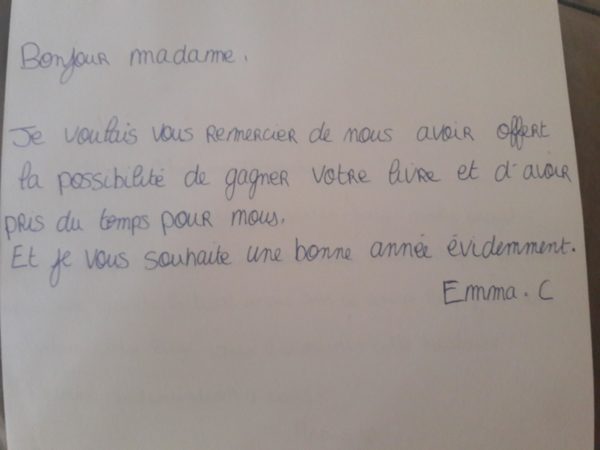 Bonjour madame.
Je voulais vous remercier de nous avoir offert
la possibilité de gagner votre livre et d'avoir
pris du temps pour nous.
Et je vous souhaite une bonne année évidemment.
Emma. C